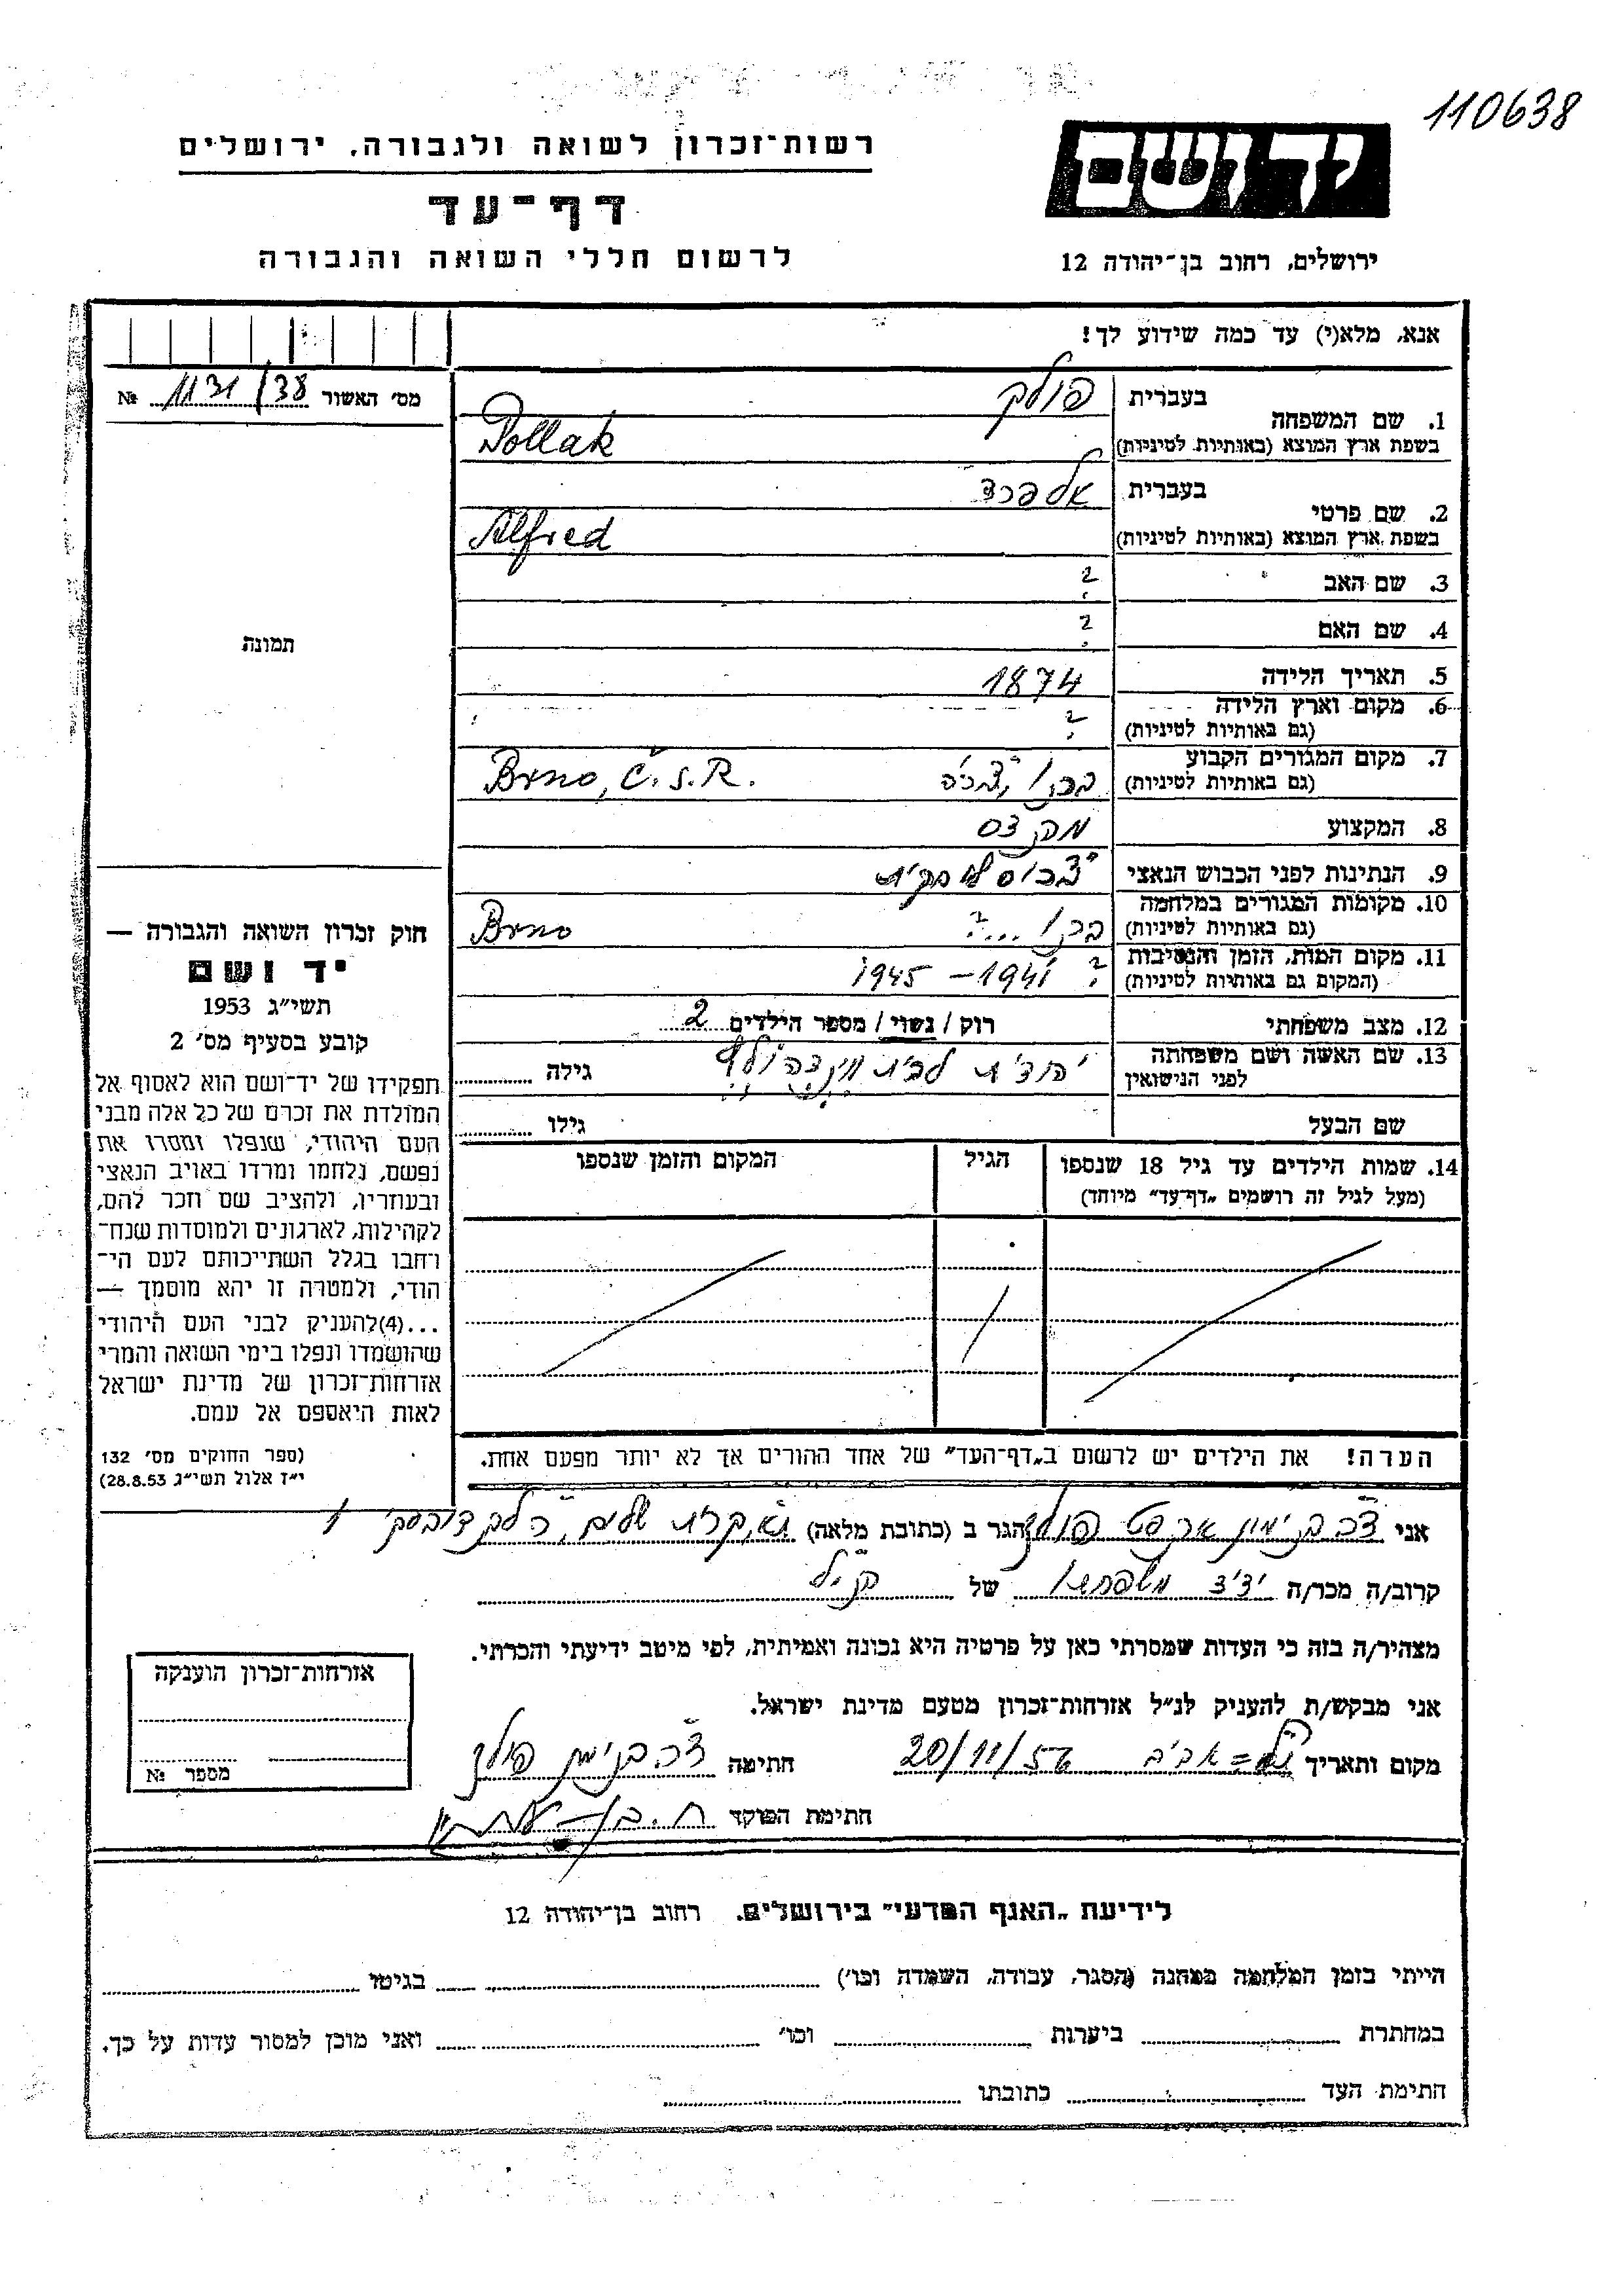 110638
יד ושם
רשות־זכרון לשואה ולגבורה, ירושלים
דף־עד
לרשום חללי השואה והגבורה
ירושלים, רחוב בן־יהודה 12
אנא, מלא(י) עד כמה שידוע לך!
מס׳ האשור 1131/38 №
1. שם המשפחה
בעברית פולק
בשפת ארץ המוצא (באותיות לטיניות) Pollak
2. שם פרטי
בעברית אלפרד
בשפת ארץ המוצא (באותיות לטיניות) Alfred
3. שם האב ?
4. שם האם ?
5. תאריך הלידה 1874
6. מקום וארץ הלידה ?
(גם באותיות לטיניות)
7. מקום המגורים הקבוע
(גם באותיות לטיניות) ברנו, צ׳כיה Brno, Č.S.R.
8. המקצוע
9. הנתינות לפני הכבוש הנאצי
10. מקומות המגורים במלחמה
(גם באותיות לטיניות) ברנו ...? Brno
11. מקום המות, הזמן והנסיבות
(המקום גם באותיות לטיניות) ? 1941–1945
12. מצב משפחתי רוק / נשוי / מספר הילדים 2
13. שם האשה ושם משפחתה
לפני הנישואין יהודית לבית גילה
שם הבעל גילו
14. שמות הילדים עד גיל 18 שנספו
(מעל לגיל זה רושמים „דף־עד״ מיוחד)
הגיל
המקום והזמן שנספו
הערה! את הילדים יש לרשום ב„דף־העד״ של אחד ההורים אך לא יותר מפעם אחת.
תמונה
חוק זכרון השואה והגבורה —
יד ושם
תשי״ג 1953
קובע בסעיף מס׳ 2
תפקידו של יד־ושם הוא לאסוף אל
המולדת את זכרם של כל אלה מבני
העם היהודי, שנפלו ומסרו את
נפשם, נלחמו ומרדו באויב הנאצי
ובעוזריו, ולהציב שם וזכר להם,
לקהילות, לארגונים ולמוסדות שנח־
רבו בגלל השתייכותם לעם הי־
הודי, ולמטרה זו יהא מוסמך —
...(4)להעניק לבני העם היהודי
שהושמדו ונפלו בימי השואה והמרי
אזרחות־זכרון של מדינת ישראל
לאות היאספם אל עמם.
(ספר החוקים מס׳ 132
י״ז אלול תשי״ג 28.8.53)
אני ד״ר בנימין ארנסט פולק הגר ב (כתובת מלאה)
קרוב/ה מכר/ה ידיד משפחתו של הנ״ל
מצהיר/ה בזה כי העדות שמסרתי כאן על פרטיה היא נכונה ואמיתית, לפי מיטב ידיעתי והכרתי.
אני מבקש/ת להעניק לנ״ל אזרחות־זכרון מטעם מדינת ישראל.
מקום ותאריך תל=אביב 20/11/56 חתימה ד״ר בנימין פולק
חתימת הפוקד
אזרחות־זכרון הוענקה
מספר №
לידיעת „האגף המדעי״ בירושלים, רחוב בן־יהודה 12
הייתי בזמן המלחמה במחנה (הסגר, עבודה, השמדה וכו׳) בגיטו
במחתרת ביערות וכו׳ ואני מוכן למסור עדות על כך.
חתימת העד כתובתו